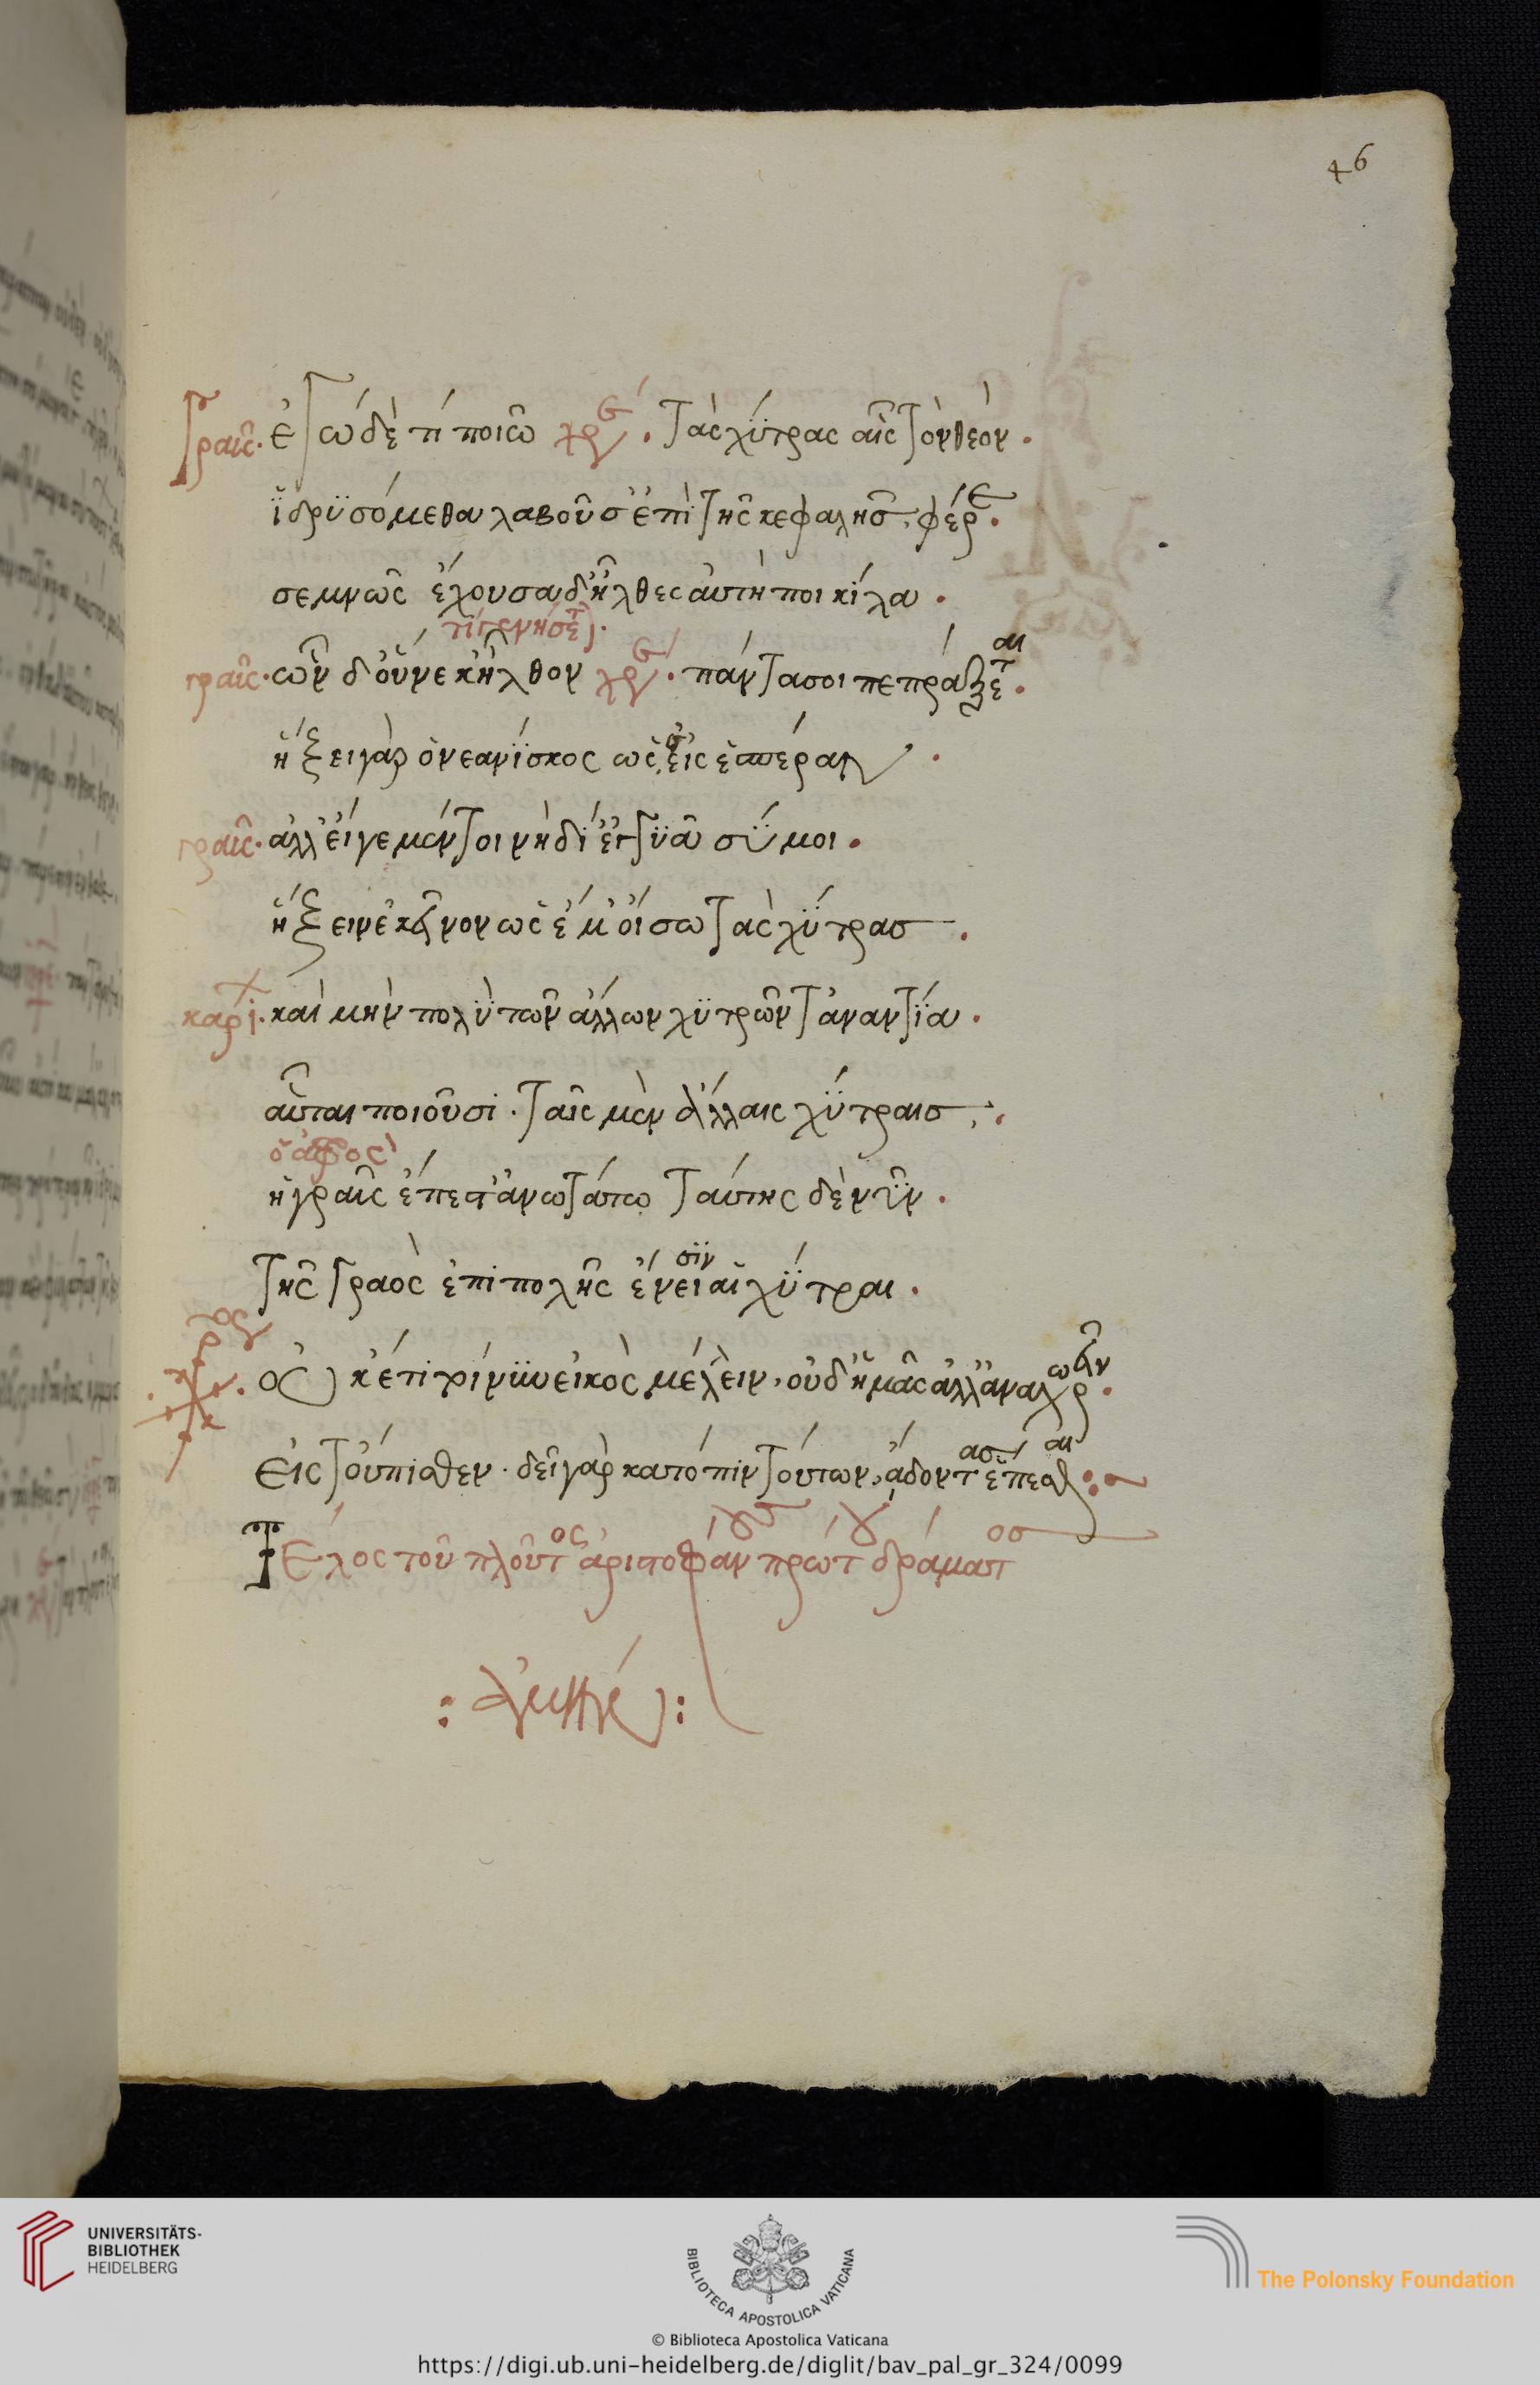 46
γραῦς· ἐγὼ δὲ τί ποιῶ χρε´· τὰς χύτρας αἷς τὸν θεὸν·
ἱδρυσόμεθα λαβοῦσ' ἐπὶ τῆς κεφαλῆσ, φέρε·
σεμνῶς ἔχουσα δ' ἦλθες αὐτὴ ποικίλα·
τί γενήσεται·
γραῦς· ὧν δ' οὕνεκ' ἦλθον χρε´· πάντα σοι πεπράξεται·
ἥξει γὰρ ὁ νεανίσκος ὥς σ' εἰς ἑσπέραν·
γραῦς· ἀλλ' εἴγε μέντοι νὴ δί' ἐγγυᾶ σύ μοι·
ἥξειν ἐκεῖνον ὡς ἔμ' οἴσω τὰς χύτρασ·
καρί· καὶ μὴν πολὺ τῶν ἄλλων χυτρῶν τἀναντία·
αὗται ποιοῦσι· ταῖς μὲν ἄλλαις χύτραισ·
ὁ ἀφρὸς
ἡ γραῦς ἔπεστ' ἀνωτάτω ταύτης δὲ νῦν·
τῆς γραὸς ἐπιπολῆς ἔνεισιν αἱ χύτραι·
χορός· οὐκέτι τοίνυν εἰκὸς μέλλειν, οὐδ' ἡμᾶς ἀλλ' ἀναχωρεῖν·
Εἰς τοὔπισθεν· δεῖ γὰρ κατόπιν τούτων, ᾄδοντας ἕπεσθαι :~
Τέλος τοῦ πλούτος ἀριστοφάνους πρώτου δράματος
: ἀμήν :
UNIVERSITÄTS-
BIBLIOTHEK
HEIDELBERG
BIBLIOTECA APOSTOLICA VATICANA
The Polonsky Foundation
© Biblioteca Apostolica Vaticana
https://digi.ub.uni-heidelberg.de/diglit/bav_pal_gr_324/0099